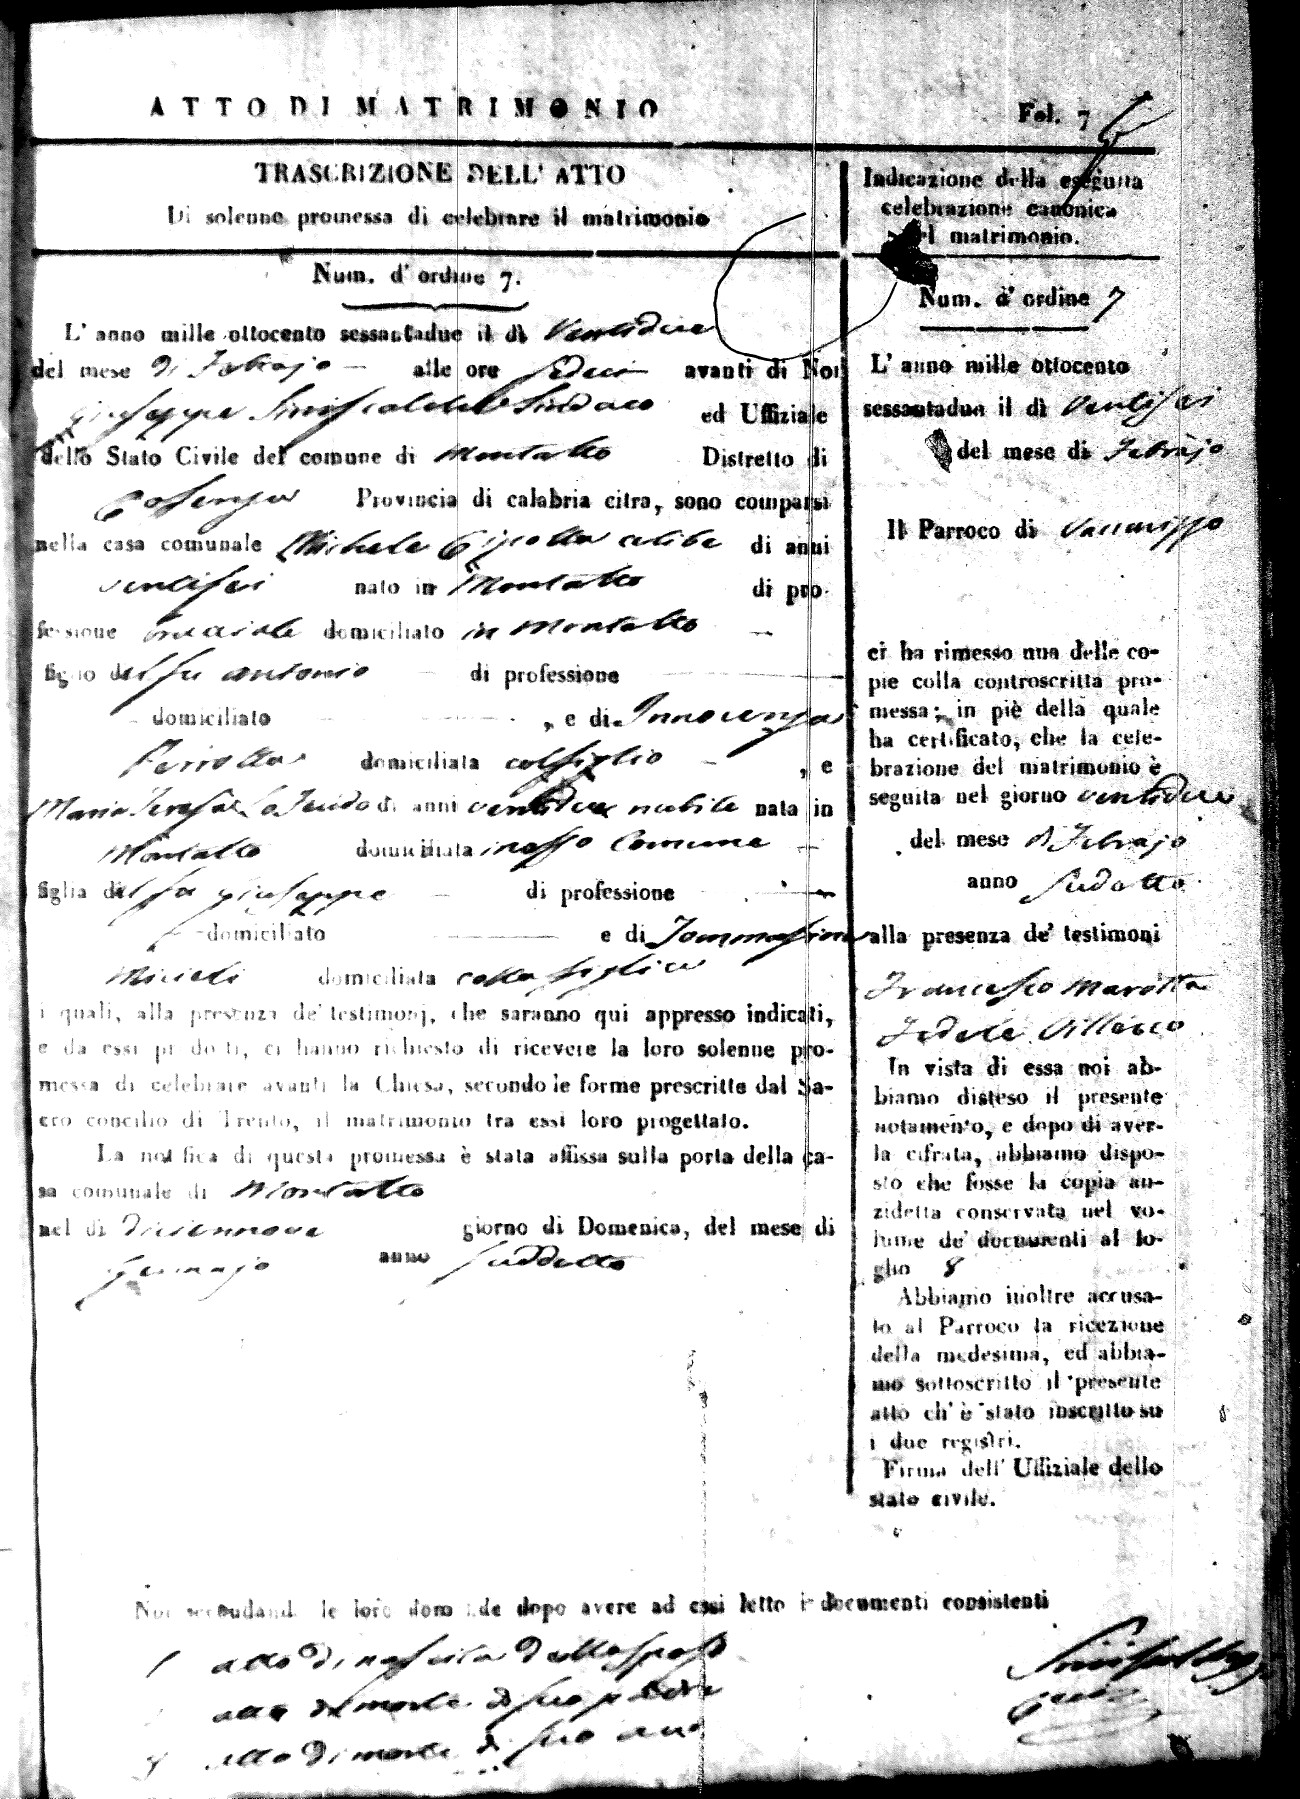 ATTO DI MATRIMONIO
Fol. 7
TRASCRIZIONE DELL' ATTO
Di solenne promessa di celebrare il matrimonio
Num. d' ordine 7.
L' anno mille ottocento sessantadue il dì Ventidue
del mese di Febrajo — alle ore sedici avanti di Noi
Giuseppe Siniscalchi Sindaco ed Uffiziale
dello Stato Civile del comune di Montalto Distretto di
Cosenza Provincia di calabria citra, sono comparsi
nella casa comunale Michele celibe di anni
ventisei nato in Montalto di pro-
fessione bracciale domiciliato in Montalto —
figlio del fu Antonio — di professione —
— domiciliato — , e di Innocenza
Perrotta domiciliata col figlio — , e
Maria Teresa di anni ventidue nubile nata in
Montalto domiciliata in esso Comune —
figlia del fu Giuseppe — di professione —
— domiciliato — e di Tommasina
Micieli domiciliata colla figlia
i quali, alla presenza de' testimonj, che saranno qui appresso indicati,
e da essi prodotti, ci hanno richiesto di ricevere la loro solenne pro-
messa di celebrare avanti la Chiesa, secondo le forme prescritte dal Sa-
cro concilio di Trento, il matrimonio tra essi loro progettato.
La notifica di questa promessa è stata affissa sulla porta della ca-
sa comunale di Montalto
nel dì diciannove giorno di Domenica, del mese di
Gennajo anno suddetto
Noi secondando le loro domande dopo avere ad essi letto i documenti consistenti
1 atto di nascita dello sposo
atto di morte di suo padre
3 atto di morte di suo avo
Indicazione della eseguita
celebrazione canonica
del matrimonio.
Num. d' ordine 7
L' anno mille ottocento
sessantadue il dì Ventisei
del mese di Febrajo
Il Parroco di Vaccarizzo
ci ha rimesso una delle co-
pie colla controscritta pro-
messa; in piè della quale
ha certificato, che la cele-
brazione del matrimonio è
seguita nel giorno ventidue
del mese di Febrajo
anno sudetto
alla presenza de' testimoni
Francesco Marotta
Fedele
In vista di essa noi ab-
biamo disteso il presente
notamento, e dopo di aver-
la cifrata, abbiamo dispo-
sto che fosse la copia an-
zidetta conservata nel vo-
lume de' documenti al fo-
glio 8
Abbiamo inoltre accusa-
to al Parroco la ricezione
della medesima, ed abbia-
mo sottoscritto il presente
atto ch' è stato inscritto su
i due registri.
Firma dell' Uffiziale dello
stato civile.